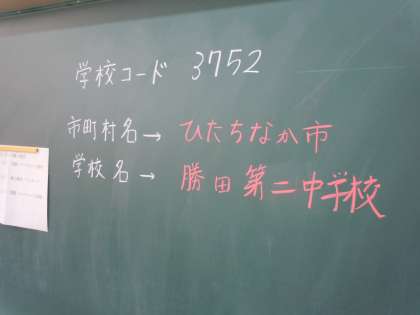 学校コード 3752
市町村名→ ひたちなか市
学校名→ 勝田第二中学校